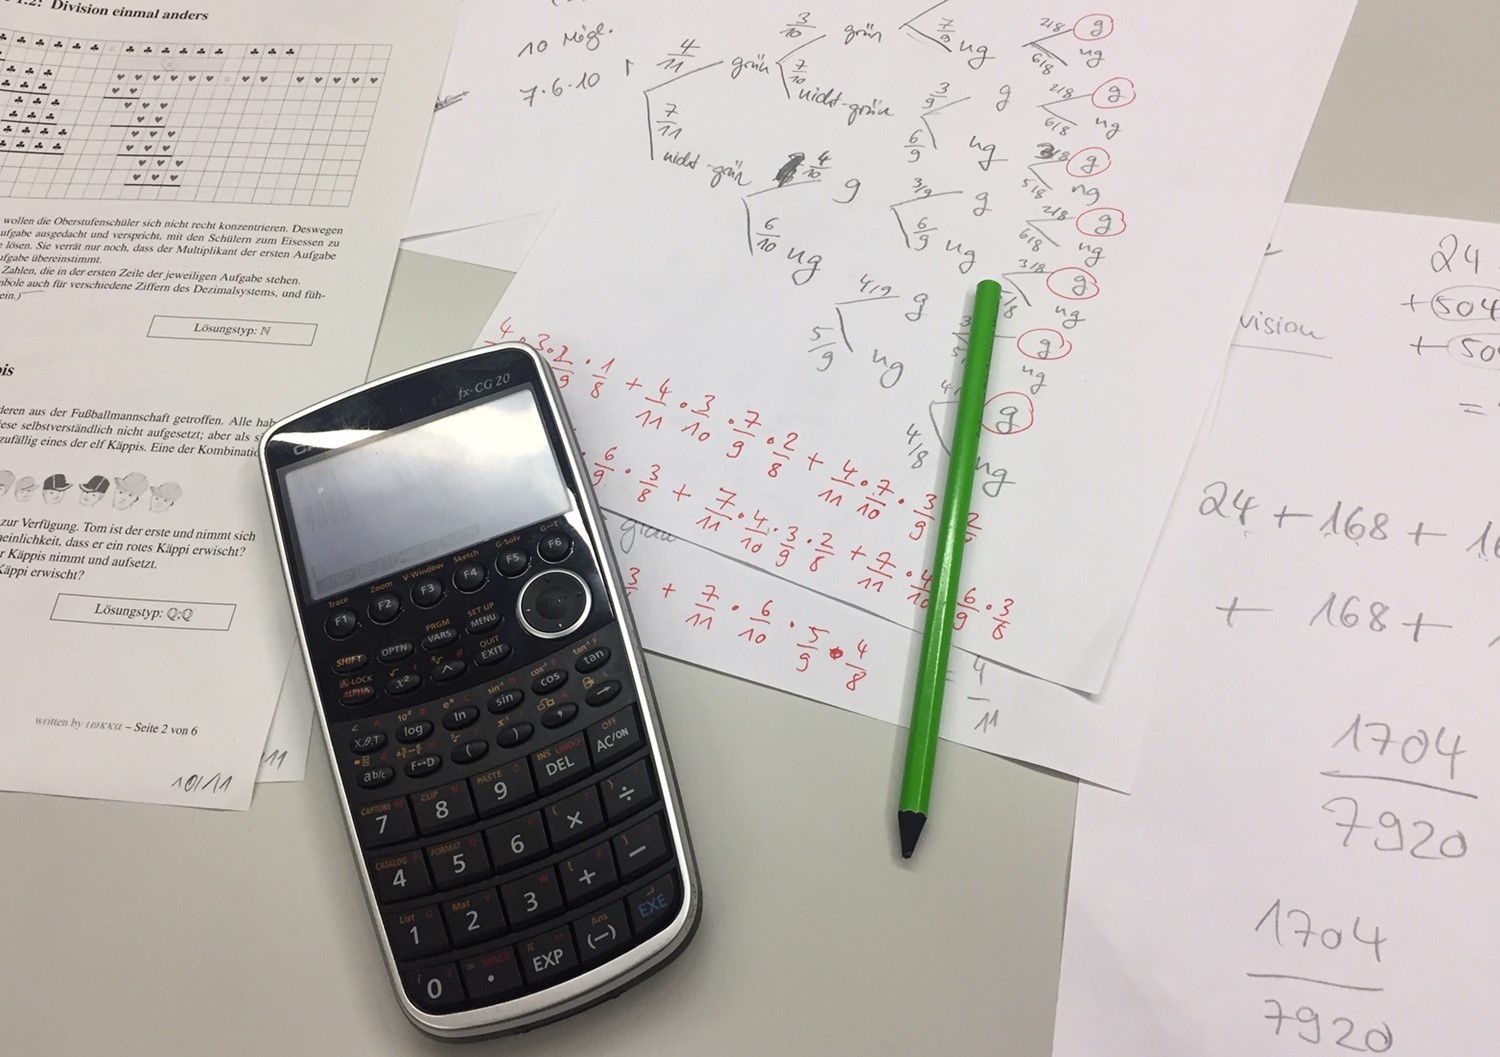 1.2: Division einmal anders
wollen die Oberstufenschüler sich nicht recht konzentrieren. Deswegen
ufgabe ausgedacht und verspricht, mit den Schülern zum Eisessen zu
lösen. Sie verrät nur noch, dass der Multiplikant der ersten Aufgabe
ufgabe übereinstimmt.
Zahlen, die in der ersten Zeile der jeweiligen Aufgabe stehen.
nbole auch für verschiedene Ziffern des Dezimalsystems, und füh-
ein.)
Lösungstyp: ℕ
pis
deren aus der Fußballmannschaft getroffen. Alle hab
iese selbstverständlich nicht aufgesetzt; aber als si
zufällig eines der elf Käppis. Eine der Kombinatio
zur Verfügung. Tom ist der erste und nimmt sich
heinlichkeit, dass er ein rotes Käppi erwischt?
r Käppis nimmt und aufsetzt.
Käppi erwischt?
Lösungstyp: ℚ;ℚ
written by ιωκκα – Seite 2 von 6
10/11
11
10 Mögl.
7·6·10
4/11 grün 3/10 grün 7/9 ug 2/8 g
6/8 ug
7/10 nicht-grün 3/9 g 2/8 g
6/8 ug
7/11 nicht-grün 6/9 ug 3/8 g
5/8 ug
4/10 g 3/9 g 2/8 g
6/8 ug
6/10 ug 6/9 ug 3/8 g
/8 ug
4/9 g g
ug
5/9 ug g
4/8 ug
4 · 3 · 2/9 · 1/8 + 4/11 · 3/10 · 7/9 · 2/8 + 4/11 · 7/10 · 3/9 2/8
· 6/9 · 3/8 + 7/11 · 4/10 · 3/9 · 2/8 + 7/11 · 4/10 6/9 · 3/8
3/ + 7/11 · 6/10 · 5/9 · 4/8
= 4/11
vision
24
+ 504
+ 504
=
24 + 168 + 16
+ 168 +
1704
7920
1704
7920
fx-CG 20
F1 F2 F3 F4 F5 F6
Trace Zoom V-Window Sketch G-Solv G↔T
SHIFT OPTN VARS MENU
PRGM SET UP
ALPHA x² ^ EXIT
A-LOCK QUIT
X,θ,T log ln sin cos tan
sin⁻¹ cos⁻¹ tan⁻¹
ab/c F↔D ( ) , →
CAPTURE CLIP PASTE INS UNDO OFF
7 8 9 DEL AC/ON
CATALOG FORMAT
4 5 6 × ÷
List Mat
1 2 3 + −
SPACE π Ans
0 . EXP (−) EXE